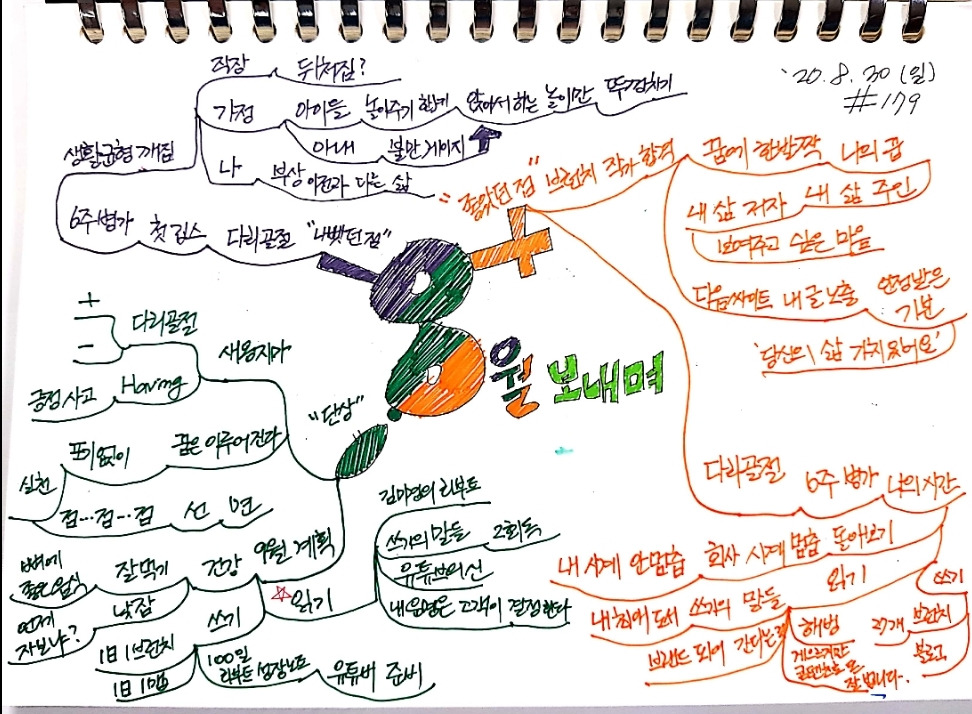 '20.8.30(일)
#179
8월 보내며
"나빴던 점"
다리골절
첫 깁스
6주 병가
생활균형 깨짐
직장
뒤처짐?
가정
아이들
놀아주기 한계
앉아서 하는 놀이만
뚜껑차기
아내
불만 게이지
나
부상 이전과 다른 삶
"좋았던 점"
브런치 작가 합격
꿈에 한발짝
나의 꿈
내 삶 주인
내 삶 저자
보여주고 싶은 마음
다음싸이트
내 글 노출
인정받은 기분
'당신의 삶 가치있어요'
다리골절
6주 병가
나의 시간
돌아보기
회사 시계 멈춤
내 시계 안멈춤
읽기
쓰기의 말들
내 최애 도서
브랜드 되어 간다는 것
해빙
게으르지만 콘텐츠로 돈은 잘 법니다.
쓰기
브런치
27개
블로그
"단상"
새옹지마
다리골절
+
-
Having
긍정 사고
꿈은 이루어진다
포기없이
실천
점…점…점
선
면
9월 계획
건강
잘먹기
뼈에 좋은 음식
낮잠
언제 자보냐?
쓰기
1日 1브런치
1日 1맵
100일 리부트 성장노트
유튜버 준비
☆읽기
김미경의 리부트
쓰기의 말들
2회독
유튜브의 신
내 운명은 고객이 결정한다